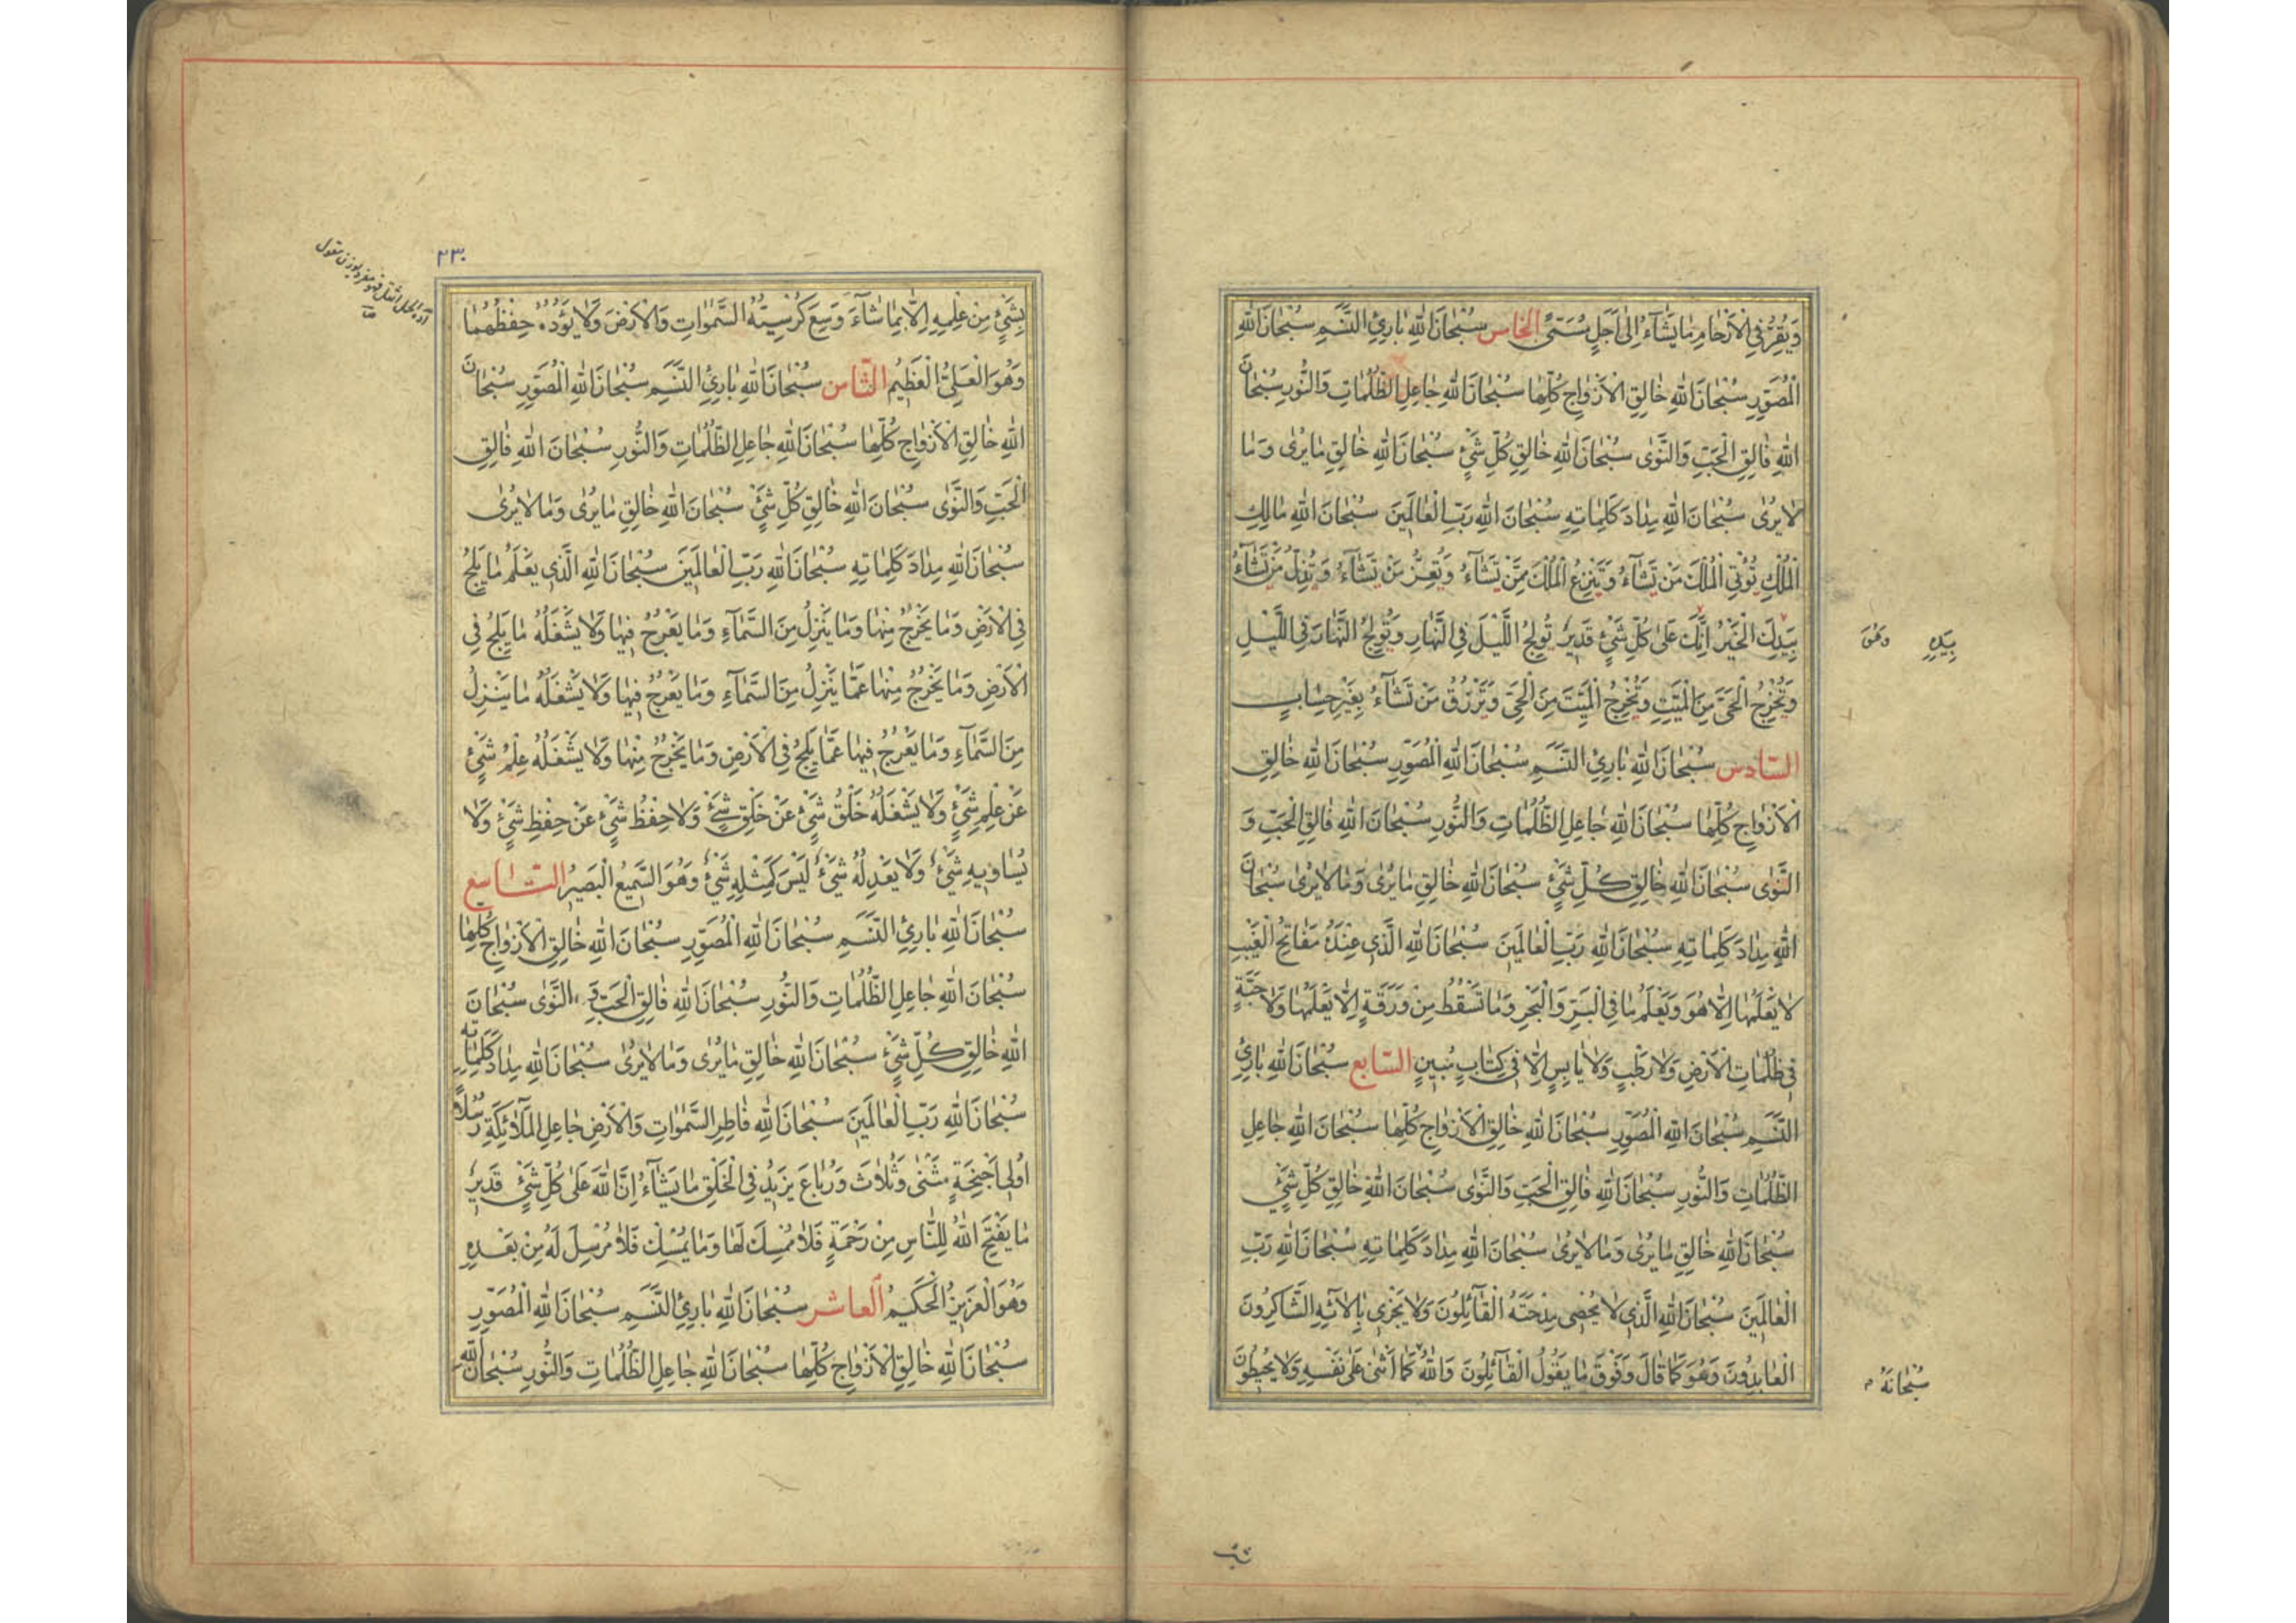 وَيُقِرُّ فِي الْاَرْحَامِ مَا يَشَآءُ اِلٰى اَجَلٍ مُسَمًّى الخامس سُبْحَانَ اللّٰهِ بَارِئِ النَّسَمِ سُبْحَانَ اللّٰهِ
الْمُصَوِّرِ سُبْحَانَ اللّٰهِ خَالِقِ الْاَزْوَاجِ كُلِّهَا سُبْحَانَ اللّٰهِ جَاعِلِ الظُّلُمَاتِ وَالنُّورِ سُبْحَانَ
اللّٰهِ فَالِقِ الْحَبِّ وَالنَّوٰى سُبْحَانَ اللّٰهِ خَالِقِ كُلِّ شَيْءٍ سُبْحَانَ اللّٰهِ خَالِقِ مَا يُرٰى وَمَا
لَا يُرٰى سُبْحَانَ اللّٰهِ مِدَادَ كَلِمَاتِهِ سُبْحَانَ اللّٰهِ رَبِّ الْعَالَمِينَ سُبْحَانَ اللّٰهِ مَالِكِ
الْمُلْكِ تُؤْتِي الْمُلْكَ مَنْ تَشَآءُ وَتَنْزِعُ الْمُلْكَ مِمَّنْ تَشَآءُ وَتُعِزُّ مَنْ تَشَآءُ وَتُذِلُّ مَنْ تَشَآءُ
بِيَدِكَ الْخَيْرُ اِنَّكَ عَلٰى كُلِّ شَيْءٍ قَدِيرٌ تُولِجُ اللَّيْلَ فِي النَّهَارِ وَتُولِجُ النَّهَارَ فِي اللَّيْلِ
بِيَدِهِ وَهُوَ
وَتُخْرِجُ الْحَيَّ مِنَ الْمَيِّتِ وَتُخْرِجُ الْمَيِّتَ مِنَ الْحَيِّ وَتَرْزُقُ مَنْ تَشَآءُ بِغَيْرِ حِسَابٍ
السادس سُبْحَانَ اللّٰهِ بَارِئِ النَّسَمِ سُبْحَانَ اللّٰهِ الْمُصَوِّرِ سُبْحَانَ اللّٰهِ خَالِقِ
الْاَزْوَاجِ كُلِّهَا سُبْحَانَ اللّٰهِ جَاعِلِ الظُّلُمَاتِ وَالنُّورِ سُبْحَانَ اللّٰهِ فَالِقِ الْحَبِّ وَ
النَّوٰى سُبْحَانَ اللّٰهِ خَالِقِ كُلِّ شَيْءٍ سُبْحَانَ اللّٰهِ خَالِقِ مَا يُرٰى وَمَا لَا يُرٰى سُبْحَانَ
اللّٰهِ مِدَادَ كَلِمَاتِهِ سُبْحَانَ اللّٰهِ رَبِّ الْعَالَمِينَ سُبْحَانَ اللّٰهِ الَّذِي عِنْدَهُ مَفَاتِحُ الْغَيْبِ
لَا يَعْلَمُهَا اِلَّا هُوَ وَيَعْلَمُ مَا فِي الْبَرِّ وَالْبَحْرِ وَمَا تَسْقُطُ مِنْ وَرَقَةٍ اِلَّا يَعْلَمُهَا وَلَا حَبَّةٍ
فِي ظُلُمَاتِ الْاَرْضِ وَلَا رَطْبٍ وَلَا يَابِسٍ اِلَّا فِي كِتَابٍ مُبِينٍ السابع سُبْحَانَ اللّٰهِ بَارِئِ
النَّسَمِ سُبْحَانَ اللّٰهِ الْمُصَوِّرِ سُبْحَانَ اللّٰهِ خَالِقِ الْاَزْوَاجِ كُلِّهَا سُبْحَانَ اللّٰهِ جَاعِلِ
الظُّلُمَاتِ وَالنُّورِ سُبْحَانَ اللّٰهِ فَالِقِ الْحَبِّ وَالنَّوٰى سُبْحَانَ اللّٰهِ خَالِقِ كُلِّ شَيْءٍ
سُبْحَانَ اللّٰهِ خَالِقِ مَا يُرٰى وَمَا لَا يُرٰى سُبْحَانَ اللّٰهِ مِدَادَ كَلِمَاتِهِ سُبْحَانَ اللّٰهِ رَبِّ
الْعَالَمِينَ سُبْحَانَ اللّٰهِ الَّذِي لَا يُحْصِي مِدْحَتَهُ الْقَآئِلُونَ وَلَا يَجْزِي بِاٰلَآئِهِ الشَّاكِرُونَ
الْعَابِدُونَ وَهُوَ كَمَا قَالَ وَفَوْقَ مَا يَقُولُ الْقَآئِلُونَ وَاللّٰهُ كَمَا اَثْنٰى عَلٰى نَفْسِهِ وَلَا يُحِيطُونَ
سُبْحَانَهُ م
٢٣٠
بِشَيْءٍ مِنْ عِلْمِهِ اِلَّا بِمَا شَآءَ وَسِعَ كُرْسِيُّهُ السَّمٰوَاتِ وَالْاَرْضَ وَلَا يَؤُدُهُ حِفْظُهُمَا
وَهُوَ الْعَلِيُّ الْعَظِيمُ الثامن سُبْحَانَ اللّٰهِ بَارِئِ النَّسَمِ سُبْحَانَ اللّٰهِ الْمُصَوِّرِ سُبْحَانَ
اللّٰهِ خَالِقِ الْاَزْوَاجِ كُلِّهَا سُبْحَانَ اللّٰهِ جَاعِلِ الظُّلُمَاتِ وَالنُّورِ سُبْحَانَ اللّٰهِ فَالِقِ
الْحَبِّ وَالنَّوٰى سُبْحَانَ اللّٰهِ خَالِقِ كُلِّ شَيْءٍ سُبْحَانَ اللّٰهِ خَالِقِ مَا يُرٰى وَمَا لَا يُرٰى
سُبْحَانَ اللّٰهِ مِدَادَ كَلِمَاتِهِ سُبْحَانَ اللّٰهِ رَبِّ الْعَالَمِينَ سُبْحَانَ اللّٰهِ الَّذِي يَعْلَمُ مَا يَلِجُ
فِي الْاَرْضِ وَمَا يَخْرُجُ مِنْهَا وَمَا يَنْزِلُ مِنَ السَّمَآءِ وَمَا يَعْرُجُ فِيهَا وَلَا يَشْغَلُهُ مَا يَلِجُ فِي
الْاَرْضِ وَمَا يَخْرُجُ مِنْهَا عَمَّا يَنْزِلُ مِنَ السَّمَآءِ وَمَا يَعْرُجُ فِيهَا وَلَا يَشْغَلُهُ مَا يَنْزِلُ
مِنَ السَّمَآءِ وَمَا يَعْرُجُ فِيهَا عَمَّا يَلِجُ فِي الْاَرْضِ وَمَا يَخْرُجُ مِنْهَا وَلَا يَشْغَلُهُ عِلْمُ شَيْءٍ
عَنْ عِلْمِ شَيْءٍ وَلَا يَشْغَلُهُ خَلْقُ شَيْءٍ عَنْ خَلْقِ شَيْءٍ وَلَا حِفْظُ شَيْءٍ عَنْ حِفْظِ شَيْءٍ وَلَا
يُسَاوِيهِ شَيْءٌ وَلَا يَعْدِلُهُ شَيْءٌ لَيْسَ كَمِثْلِهِ شَيْءٌ وَهُوَ السَّمِيعُ الْبَصِيرُ التاسع
سُبْحَانَ اللّٰهِ بَارِئِ النَّسَمِ سُبْحَانَ اللّٰهِ الْمُصَوِّرِ سُبْحَانَ اللّٰهِ خَالِقِ الْاَزْوَاجِ كُلِّهَا
سُبْحَانَ اللّٰهِ جَاعِلِ الظُّلُمَاتِ وَالنُّورِ سُبْحَانَ اللّٰهِ فَالِقِ الْحَبِّ وَالنَّوٰى سُبْحَانَ
اللّٰهِ خَالِقِ كُلِّ شَيْءٍ سُبْحَانَ اللّٰهِ خَالِقِ مَا يُرٰى وَمَا لَا يُرٰى سُبْحَانَ اللّٰهِ مِدَادَ كَلِمَاتِهِ
سُبْحَانَ اللّٰهِ رَبِّ الْعَالَمِينَ سُبْحَانَ اللّٰهِ فَاطِرِ السَّمٰوَاتِ وَالْاَرْضِ جَاعِلِ الْمَلَآئِكَةِ رُسُلًا
اُولِي اَجْنِحَةٍ مَثْنٰى وَثُلَاثَ وَرُبَاعَ يَزِيدُ فِي الْخَلْقِ مَا يَشَآءُ اِنَّ اللّٰهَ عَلٰى كُلِّ شَيْءٍ قَدِيرٌ
مَا يَفْتَحِ اللّٰهُ لِلنَّاسِ مِنْ رَحْمَةٍ فَلَا مُمْسِكَ لَهَا وَمَا يُمْسِكْ فَلَا مُرْسِلَ لَهُ مِنْ بَعْدِهِ
وَهُوَ الْعَزِيزُ الْحَكِيمُ العاشر سُبْحَانَ اللّٰهِ بَارِئِ النَّسَمِ سُبْحَانَ اللّٰهِ الْمُصَوِّرِ
سُبْحَانَ اللّٰهِ خَالِقِ الْاَزْوَاجِ كُلِّهَا سُبْحَانَ اللّٰهِ جَاعِلِ الظُّلُمَاتِ وَالنُّورِ سُبْحَانَ اللّٰهِ